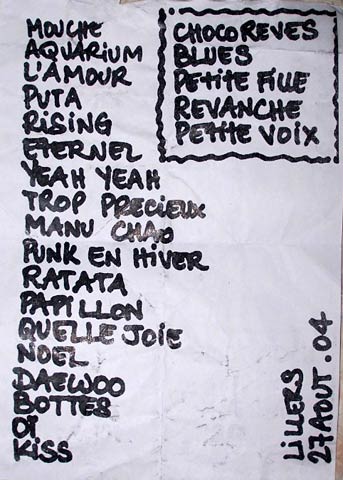 MOUCHE
AQUARIUM
L'AMOUR
PUTA
RiSiNG
ETERNEL
YEAH YEAH
TROP PRECIEUX
MANU CHAO
PUNK EN HiVER
RATATA
PAPILLON
QUELLE JOIE
NOEL
DAEWOO
BOTTES
Oi
KiSS
CHOCOREVES
BLUES
PETiTE FiLLE
REVANCHE
PETiTE VOiX
LiLLERS
27 AOUT. 04